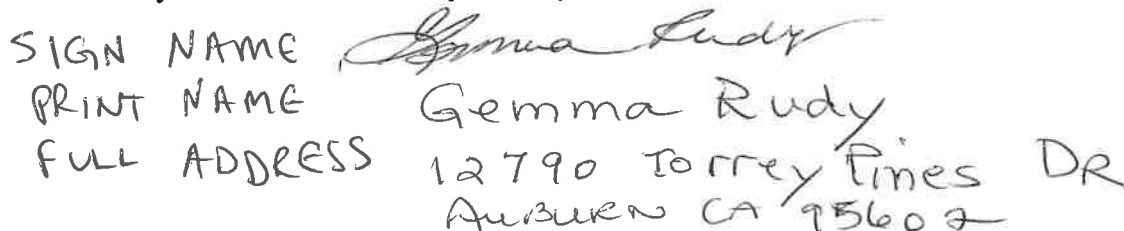 SIGN NAME Gemma Rudy
PRINT NAME Gemma Rudy
FULL ADDRESS 12790 Torrey Pines DR
AUBURN CA 95602